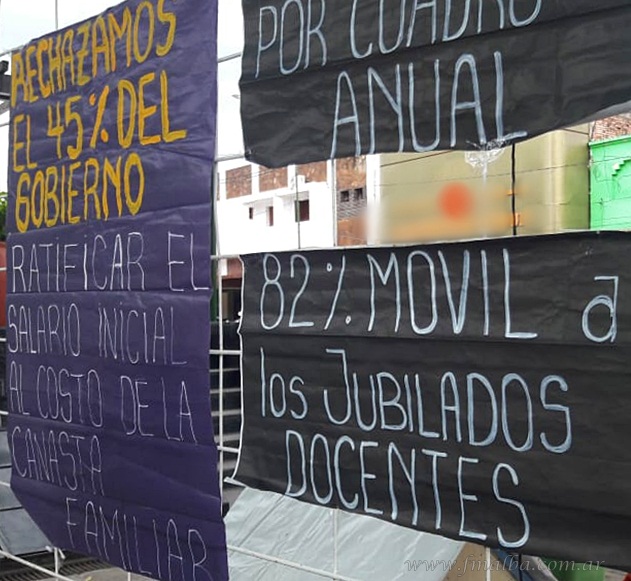 RECHAZAMOS
EL 45% DEL
GOBIERNO
RATIFICAR EL
SALARIO INICIAL
AL COSTO DE LA
CANASTA
FAMILIAR
POR CUADRO
ANUAL
82% MOVIL a
los JUBILADOS
DOCENTES
www.fmalba.com.ar